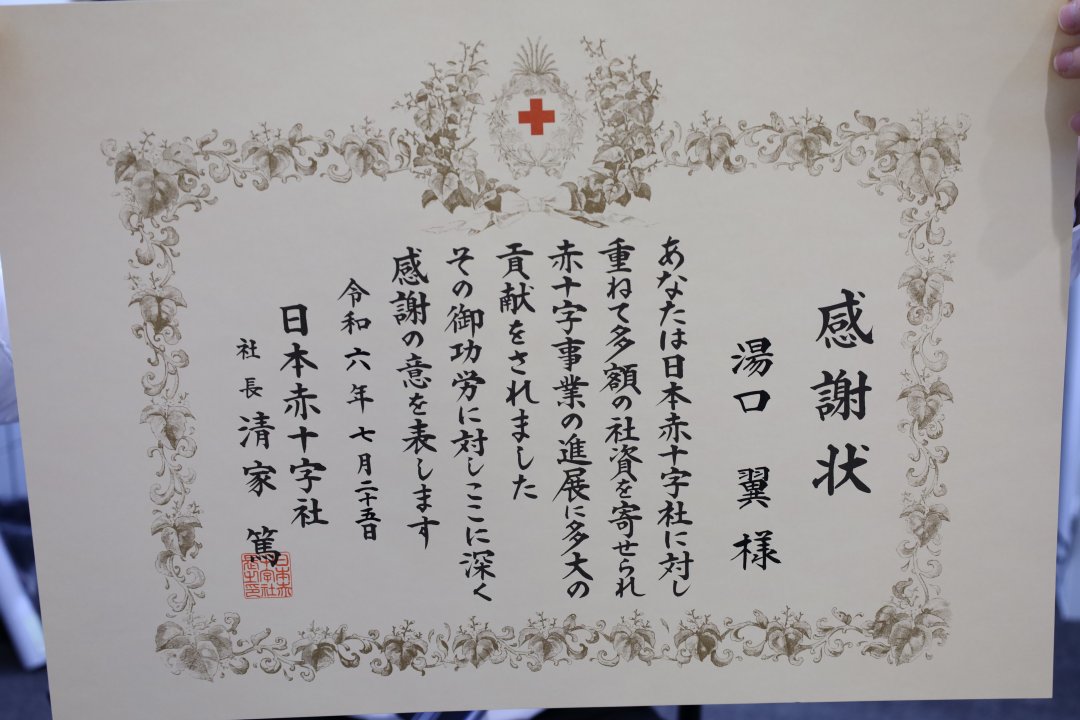 感謝状
湯口 翼 様
あなたは日本赤十字社に対し
重ねて多額の社資を寄せられ
赤十字事業の進展に多大の
貢献をされました
その御功労に対しここに深く
感謝の意を表します
令和六年七月二十五日
日本赤十字社
社長 清家 篤
日本赤
十字社
長之印